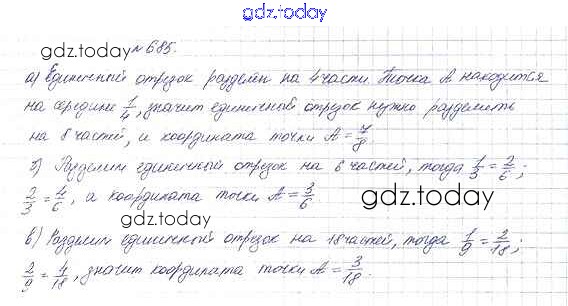 gdz.today
gdz.today № 685.
а) Единичный отрезок разделён на 4 части. Точка А находится
на середине 1/4, значит единичный отрезок нужно разделить
на 8 частей, и координата точки А = 7/8.
б) Разделим единичный отрезок на 6 частей, тогда 1/3 = 2/6;
2/3 = 4/6, а координата точки А = 3/6.
gdz.today
gdz.today
в) Разделим единичный отрезок на 18 частей, тогда 1/9 = 2/18;
2/9 = 4/18, значит координата точки А = 3/18.
gdz.today